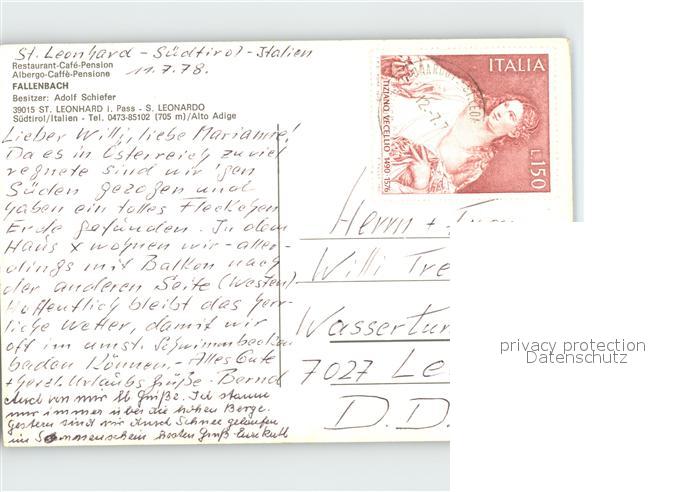 St. Leonhard – Südtirol – Italien
11.7.78.
Restaurant-Café-Pension
Albergo-Caffè-Pensione
FALLENBACH
Besitzer: Adolf Schiefer
39015 ST. LEONHARD i. Pass - S. LEONARDO
Südtirol/Italien - Tel. 0473-85102 (705 m)/Alto Adige
Lieber Willi, liebe Marianne!
Da es in Österreich zuviel
regnete sind wir gen
Süden gezogen und
haben ein tolles Fleckchen
Erde gefunden. In dem
Haus x wohnen wir – aller-
dings mit Balkon nach
der anderen Seite (Westen)
Hoffentlich bleibt das herr-
liche Wetter, damit wir
oft im Schwimmbecken
baden können. – Alles Gute
+ herzl. Urlaubs Grüße. Bernd
Auch von mir lb Grüße. Ich staune
nur immer über die hohen Berge.
Gestern sind wir durch Schnee gelaufen
im Sonnenschein Besten Gruß Eure Ruth
ITALIA
TIZIANO VECELLIO 1490-1576
L.150
Herrn + Frau
Willi Tre
Wassertur
7027 Le
D.D.
privacy protection
Datenschutz